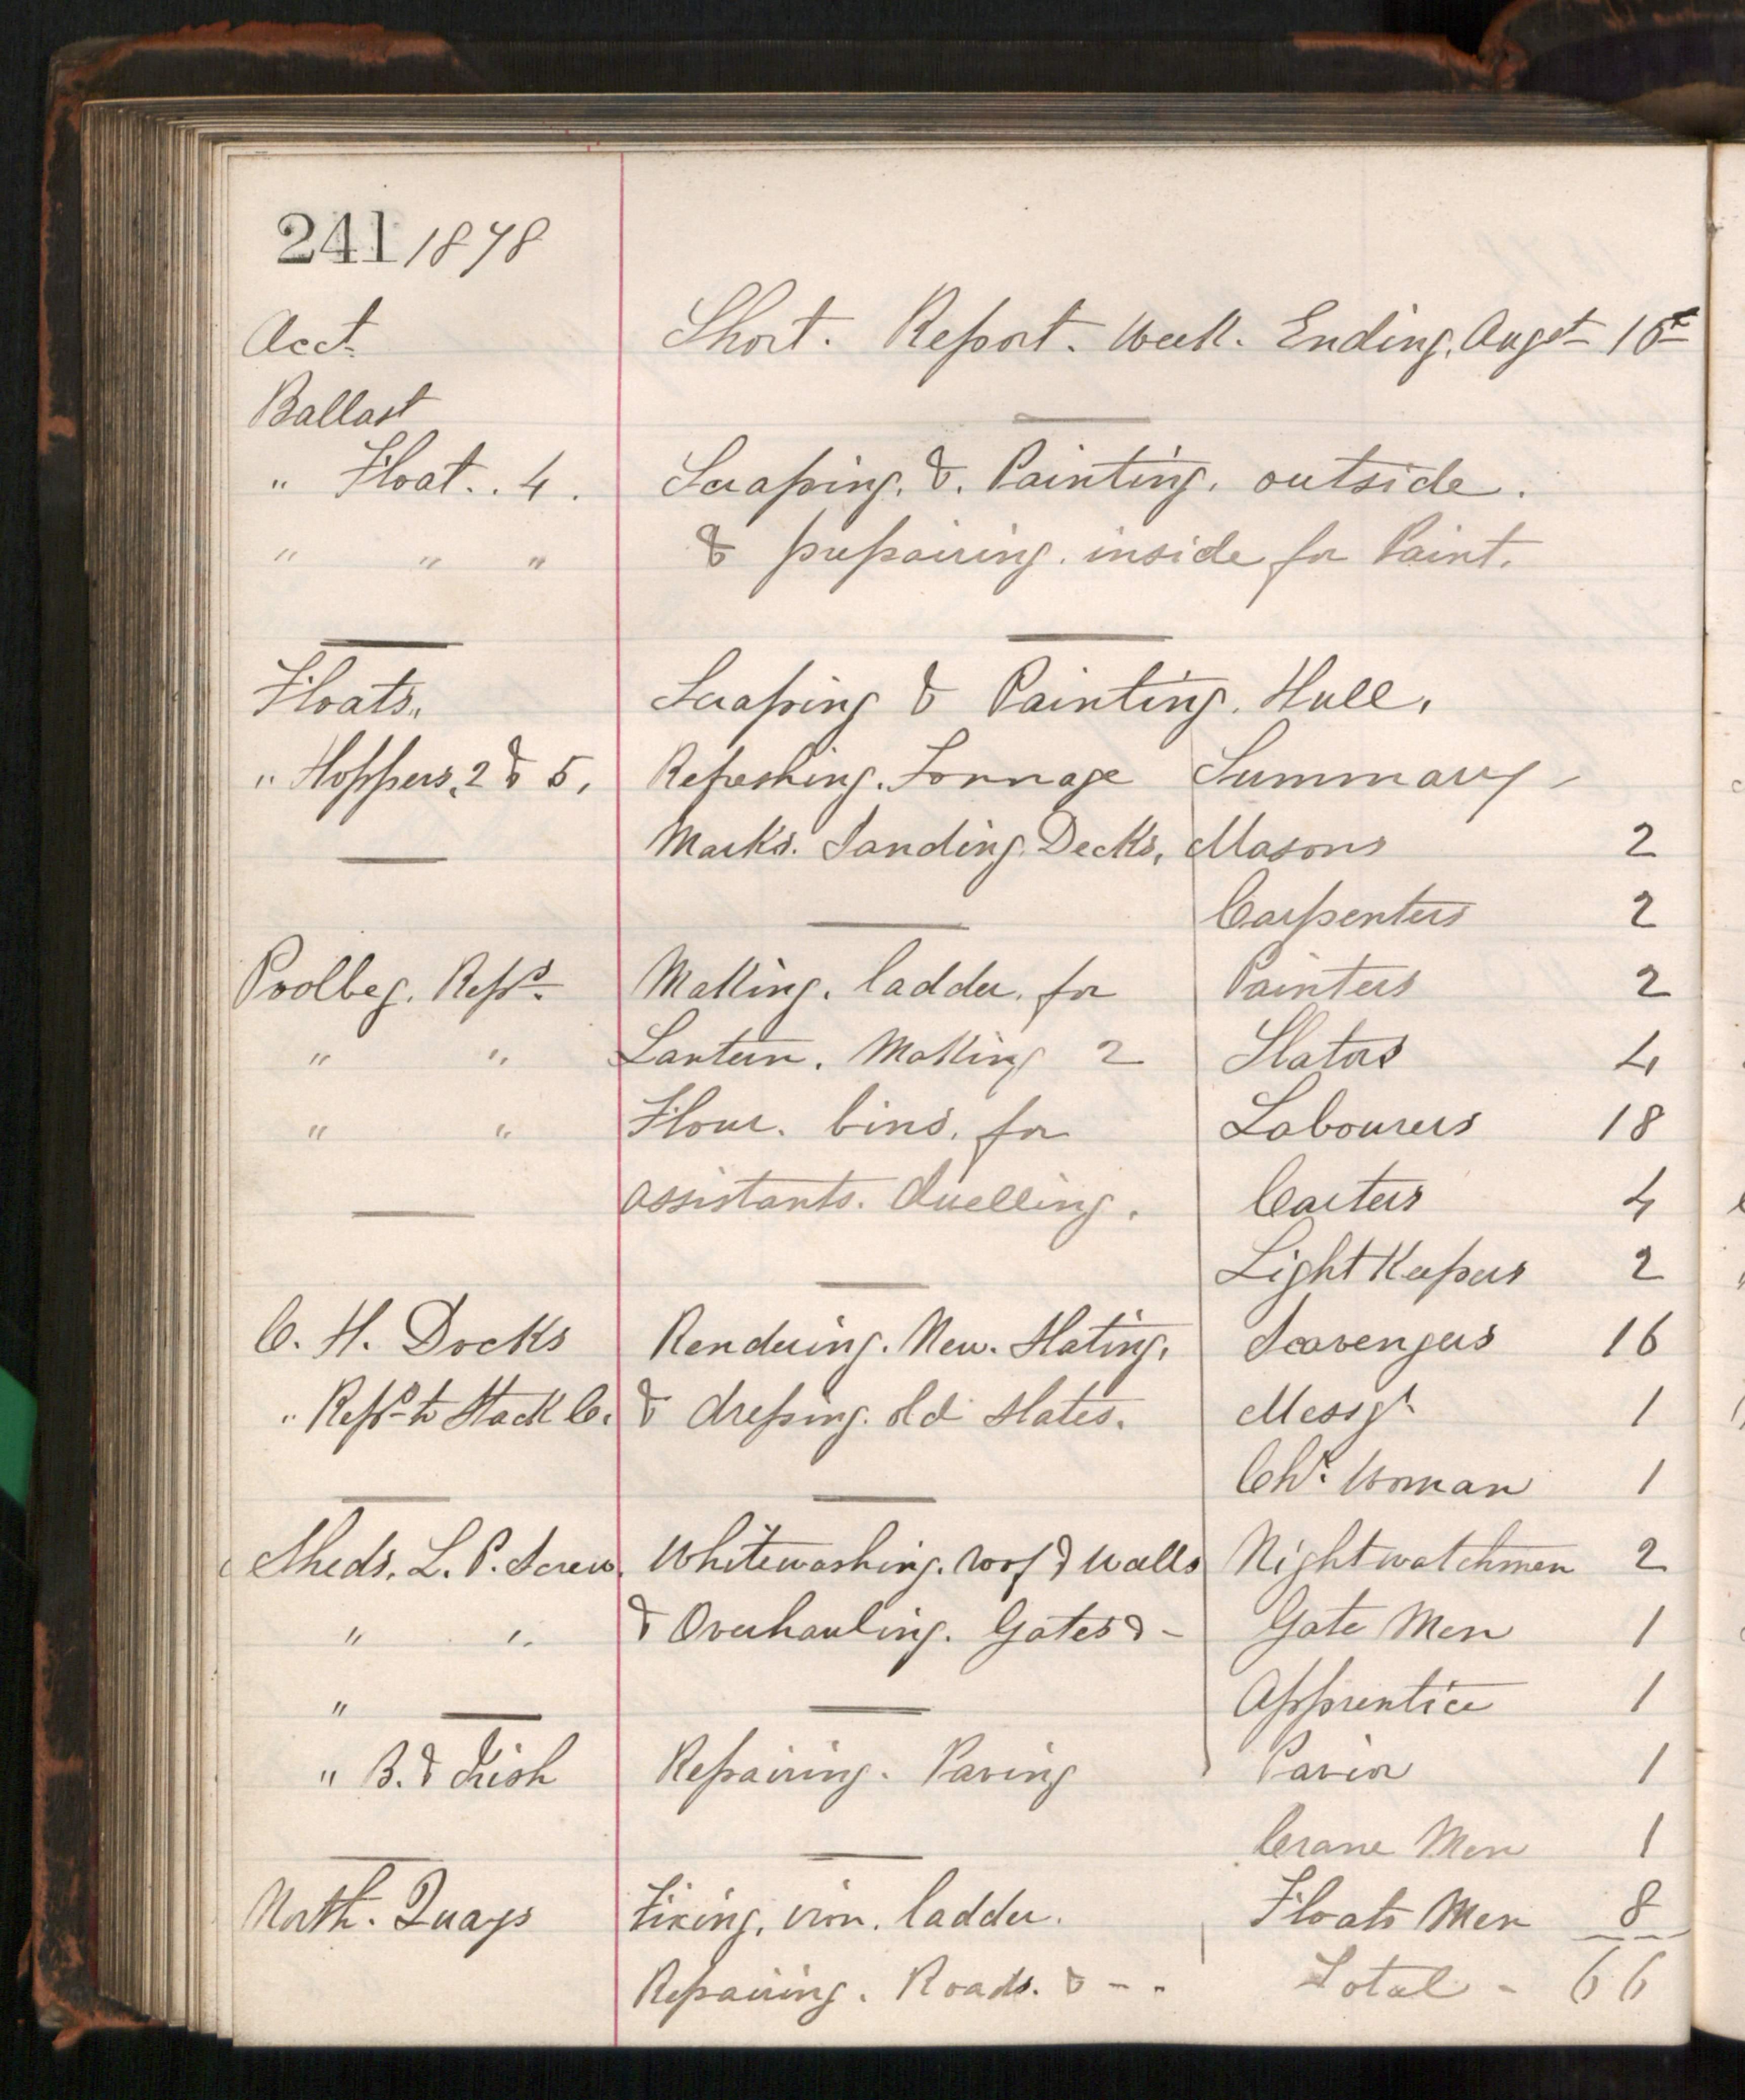 241 1878
Acct. Short. Report. Week. Ending. Augst 16th
Ballast
" Float. . 4. Scraping. & Painting. outside.
" " " & prepairing. inside for Paint.
Floats. Scraping & Painting. Hull.
" Hoppers. 2 & 5. Refreshing. Tonnage Summary
Marks. Sanding. Decks. Masons 2
Carpenters 2
Poolbeg. Reprs. Making. ladder. for Painters 2
" " Lantern. Making 2 Slators 4
" " Flour. bins. for Labourers 18
assistants. dwelling. Carters 4
Light Keepers 2
C. H. Docks Rendering. New. Slating. Scavengers 16
" Reprs to Stack C. & dressing. old slates. Messgr 1
Chr. Woman 1
Sheds. L. P. Screw. Whitewashing. roof & walls Nightwatchmen 2
" " & Overhauling. Gates & - Gate Men 1
" Apprentice 1
" B. & Irish Repairing. Paving Pavior 1
Crane Men 1
North. Quays Fixing. iron. ladder. Floats Men 8
Repairing. Roads. & - - Total - 66